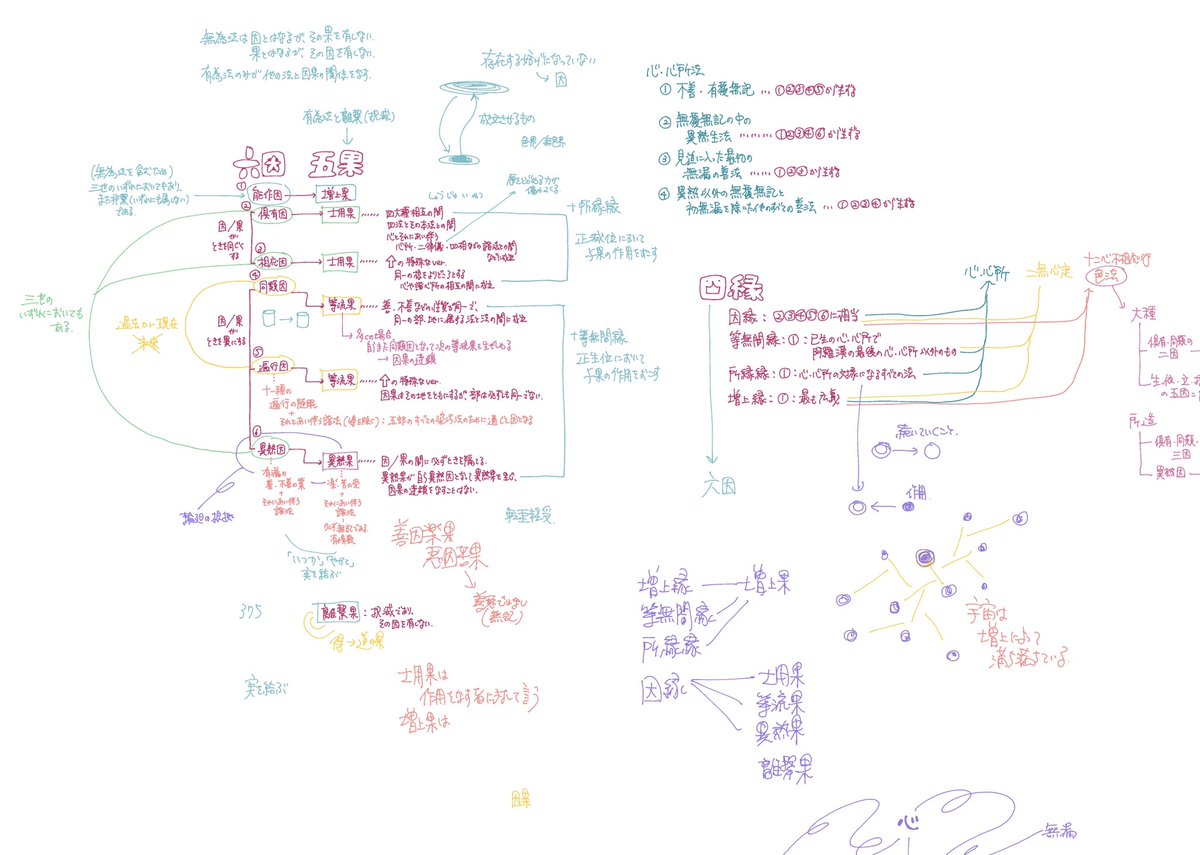 無為法は因とはなるが、その果を有しない.
果とはなるが、その因を有しない.
有為法のみが他の法と因果の関係をなす.
存在する妨げになっていない
因
成立させるもの
色界/無色界
有為法と離繋(択滅)
六因 五果
(無為法を含むため)
三世のいずれにおいてもあり、
また非世(いずれにも属さない)
である.
① 能作因
増上果
② 倶有因
士用果
四大種相互の間
四法とその本法との間
心とそれにあい伴う
心所・二律儀・四相などの諸法との間
因/果
が
ときを同じく
する
③ 相応因
士用果
の特殊なver.
同一の根をよりどころとする
心や諸心所の相互の間に成立
+所縁縁
正滅位において
与果の作用をおこす
④ 同類因
等流果
善・不善などの性質が同一で、
同一の部・地に属する法と法の間に成立
多くの場合
自らまた同類因となって次の等流果を生ぜしめる
→ 因果の連鎖
三世の
いずれにおいても
ある.
過去or現在
未来
因/果
が
ときを異にする
⑤ 遍行因
等流果
の特殊なver.
因果はその地をともにするが、部は必ずしも同一でない.
十一種の
遍行の随眠
+
それとあい伴う諸法(得を除く):五部のすべての染汚法のために遍じて因となる
+等無間縁
正生位において
与果の作用をおこす
⑥ 異熟因
異熟果
因/果の間に必ずときを隔てる.
異熟果が自ら異熟因となって異熟果を生み、
因果の連鎖をなすことはない.
有漏の
善・不善の業
+
それにあい伴う
諸法
楽・苦の受
+
それにあい伴う
諸法
必ず無記である
有情数
輪廻の根拠
「いつか」「やがて」
実を結ぶ
善因楽果
悪因苦果
善悪ではない
(無記)
375
離繋果:択滅であり、
その因を有しない.
得→道の果
実を結ぶ
士用果は
作用をなす者に対して言う
増上果は
因果
心・心所法
① 不善・有覆無記 … ①②③④⑤が生ずる
② 無覆無記の中の
異熟生法 ……… ①②③④⑥が生ずる
③ 見道に入った最初の
無漏の善法 …… ①②③が生ずる
④ 異熟以外の無覆無記と
初無漏を除いた他のすべての善法 … ①②③④が生ずる
四縁
因縁:②③④⑤⑥に相当
等無間縁:①:已生の心・心所で
阿羅漢の最後の心・心所以外のもの
所縁縁:①:心・心所の対象になるすべての法
増上縁:①:最も広義
六因
心・心所
二無心定
十二心不相応行
色法
大種
倶有・同類の
二因
所造
倶有・同類
三因
異熟因
作用
増上縁
増上果
等無間縁
所縁縁
因縁
士用果
等流果
異熟果
離繋果
宇宙は
増上によって
満ち落ちている.
心
無漏